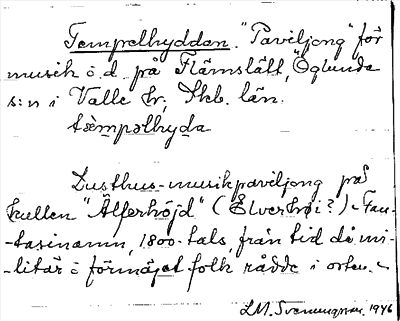 Tempelhyddan. "Paviljong" för
musik o. d. på Flämslätt, Öglunda
s:n i Valle hr, Skb. län.
tæ̀mpəlhyda
Lusthus- musikpaviljong på
kullen "Älferhöjd" (Elverhøi?) Fan-
-tasinamn, 1800-tals, från tid då mi-
-litär o förnäjat folk rådde i orten.
LM. Svenungsson. 1946